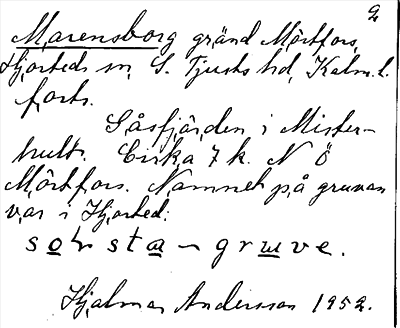 2
Marensborg gränd Mörtfors,
Hjorteds sn, S. Tjusts hd, Kalm. l.
forts.
Såsfjärden i Mister-
hult. Cirka 7 k. N Ö
Mörtfors. Namnet på gruvan
var i Hjorted:
sohsta - gruve.
Hjalmar Andersson 1952.